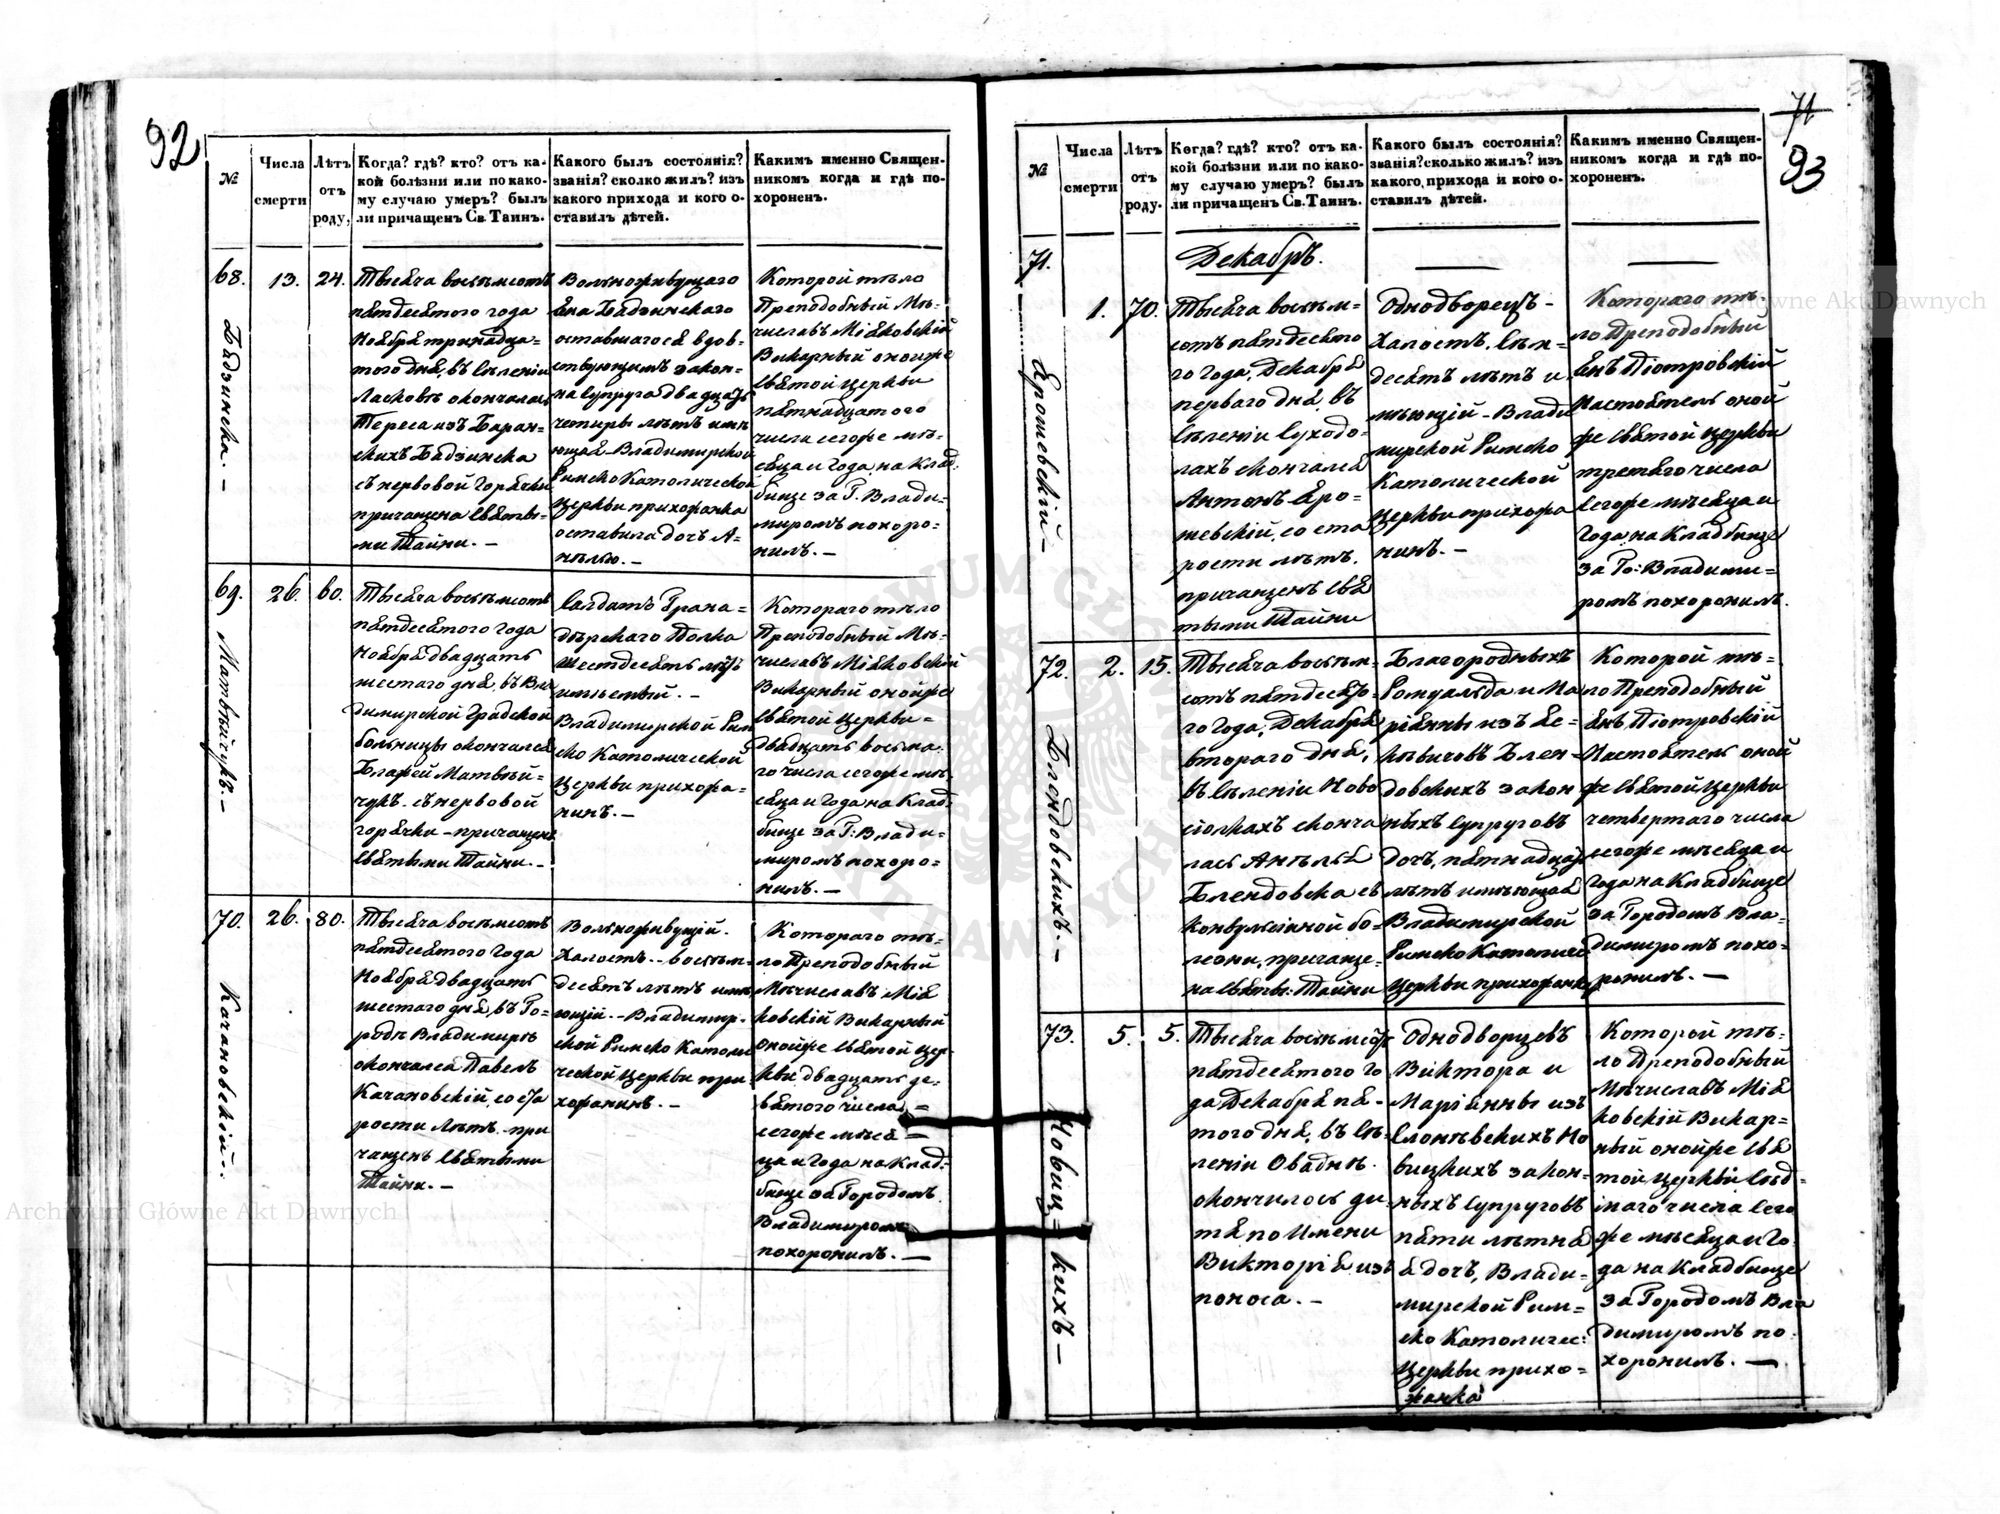 92
№
Числа
смерти
Лѣтъ
отъ
роду,
Когда? гдѣ? кто? отъ ка-
кой болѣзни или по како-
му случаю умеръ? былъ
ли причащенъ Св. Таинъ.
Какого былъ состоянія?
званія? сколко жилъ? изъ
какого прихода и кого о-
ставилъ дѣтей.
Какимъ именно Священ-
никомъ когда и гдѣ по-
хороненъ.
68.
Бадзинска. —
13.
24.
Тысяча восѣмсотъ
пятдесятого года
Ноября тринадца=
того дня, въ сѣленіи
Ласковъ скончалась
Тереса изъ Баран=
скихъ Бадзинска
съ нервовой горячки
причащена святы=
ми Тайни. —
Вольноживущаго
Яна Бадзинскаго
оставшагося вдов=
ствующимъ закон=
на супруга двадцать
четыры лѣтъ имѣ
ющая Владимирской
Римско Католической
Церкви прихожанка
оставила дочь А=
нѣлю. —
Которой тѣло
Преподобный Мѣ=
числавъ Мѣяковскій
Викарный онойже
Святой Церкви
пятнадцатого
числа сегоже мѣ=
сяца и Года на Клад=
бище за Г. Влади=
миромъ похоро=
нилъ. —
69.
Матвѣйчукъ. —
26.
60.
Тысяча восѣмсотъ
пятдесятого года
Ноября двадцать
шестаго дня, въ Вла
димирской Градской
больницы скончался
Блажей Матвѣй=
чукъ съ нервовой
горячки — причащенъ
Святыми Тайни. —
Салдатъ Грана=
дѣрскаго Полка
шестдесятъ лѣтъ
имѣемый. —
Владимирской Рим
ско Католической
Церкви прихожа=
нинъ. —
Котораго тѣло
Преподобный Мѣ=
числавъ Мѣяковскій
Викарный онойже
Святой Церкви =
двадцать восьма=
го числа сегоже мѣ=
сяца и Года на Клад=
бище за Г: Влади=
миромъ похоро=
нилъ. —
70.
Качановскій.
26.
80.
Тысяча восѣмсотъ
пятдесятого года
Ноября двадцать
шестаго дня, въ Го=
родѣ Владимирѣ
скончался Павелъ
Качановскій, со ста
рости Лѣтъ при
чащенъ Святыми
Тайни. —
Вольноживущій.
Халостъ. — восѣм=
десятъ лѣтъ имѣ
ющій. — Владимир=
ской Римско Католи
ческой Церкви при
хожанинъ. —
Котораго тѣ=
ло Преподобный
Мѣчиславъ Мѣя
ковскій Викарный
онойже Святой Цер=
кви двадцать де=
вятого числа =
сегоже мѣся =
ца и Года на Клад=
бище за Городомъ
Владимиромъ
похоронилъ. —
71
93
№
Числа
смерти
Лѣтъ
отъ
роду.
Когда? гдѣ? кто? отъ ка-
кой болѣзни или по како-
му случаю умеръ? былъ
ли причащенъ Св. Таинъ.
Какого былъ состоянія?
званія? сколько жилъ? изъ
какого прихода и кого о-
ставилъ дѣтей.
Какимъ именно Священ-
никомъ когда и гдѣ по-
хороненъ.
71.
Ерошевскій —
Декабрь.
1.
70.
Тысяча восѣм=
сотъ пятдесято
го Года, Декабря
перваго дня, въ
сѣленіи Суходо=
лахъ скончался
Антонъ Еро=
шевскій, со ста
рости лѣтъ.
причащенъ Свя
тыми Тайни
Однодворецъ -
Халостъ. Сѣм=
десятъ лѣтъ и
мѣющій — Влади
мирской Римско
Католической
Церкви прихожа
нинъ. —
Котораго тѣ=
ло Преподобный
Янъ Піотровскій
Настоятель оной
же Святой Церкви
третяго числа
сегоже мѣсяца и
Года, на Кладбище
за Го: Владими=
ромъ похоронилъ.
72.
Блендовскихъ. —
2.
15.
Тысяча восѣм=
сотъ пятдесято=
го Года, Декабря
втораго дня,
въ Сѣленіи Ново
сіолкахъ сконча
лась Анѣля
Блендовска съ
конвулсійной бо=
лезни, причаще=
на Святы: Тайни
Благородныхъ
Ромуальда и Ма
ріянны изъ Яс=
Блен=
довскихъ закон
ныхъ Супруговъ
дочь, пятнадцать
лѣтъ имѣющая
Владимирской
Римско Католичес
Церкви прихожанка
Которой тѣ=
ло Преподобный
Янъ Піотровскій
Настоятель оной
же Святой Церкви
четвертаго числа
сегоже мѣсяца и
Года на Кладбище
за Городомъ Вла=
димиромъ похо=
ронилъ. —
73.
Новиц= кихъ —
5.
5.
Тысяча восѣмсотъ
пятдесятого Го
да Декабря пя=
того дня, въ Сѣ=
леніи Оваднѣ.
скончилось ди=
тя по Имени
Викторія изъ
поноса. —
Однодворцевъ
Виктора и
Маріянны изъ
Слонѣвскихъ Но
вицкихъ закон=
ныхъ Супруговъ
пяти лѣтня
я дочь, Влади=
мирской Рим=
ско Католичес:
Церкви прихо=
жанка
Которой тѣ=
ло Преподобный
Мѣчиславъ Мѣя
ковскій Викар=
ный онойже Свя
той Церкви Сѣд=
маго числа Сего
же мѣсяца и Го
да на Кладбище
за Городомъ Вла
димиромъ по=
хоронилъ. —
Archiwum Główne Akt Dawnych
Główne Akt Dawnych
ARCHIWUM GŁÓWNE AKT DAWNYCH